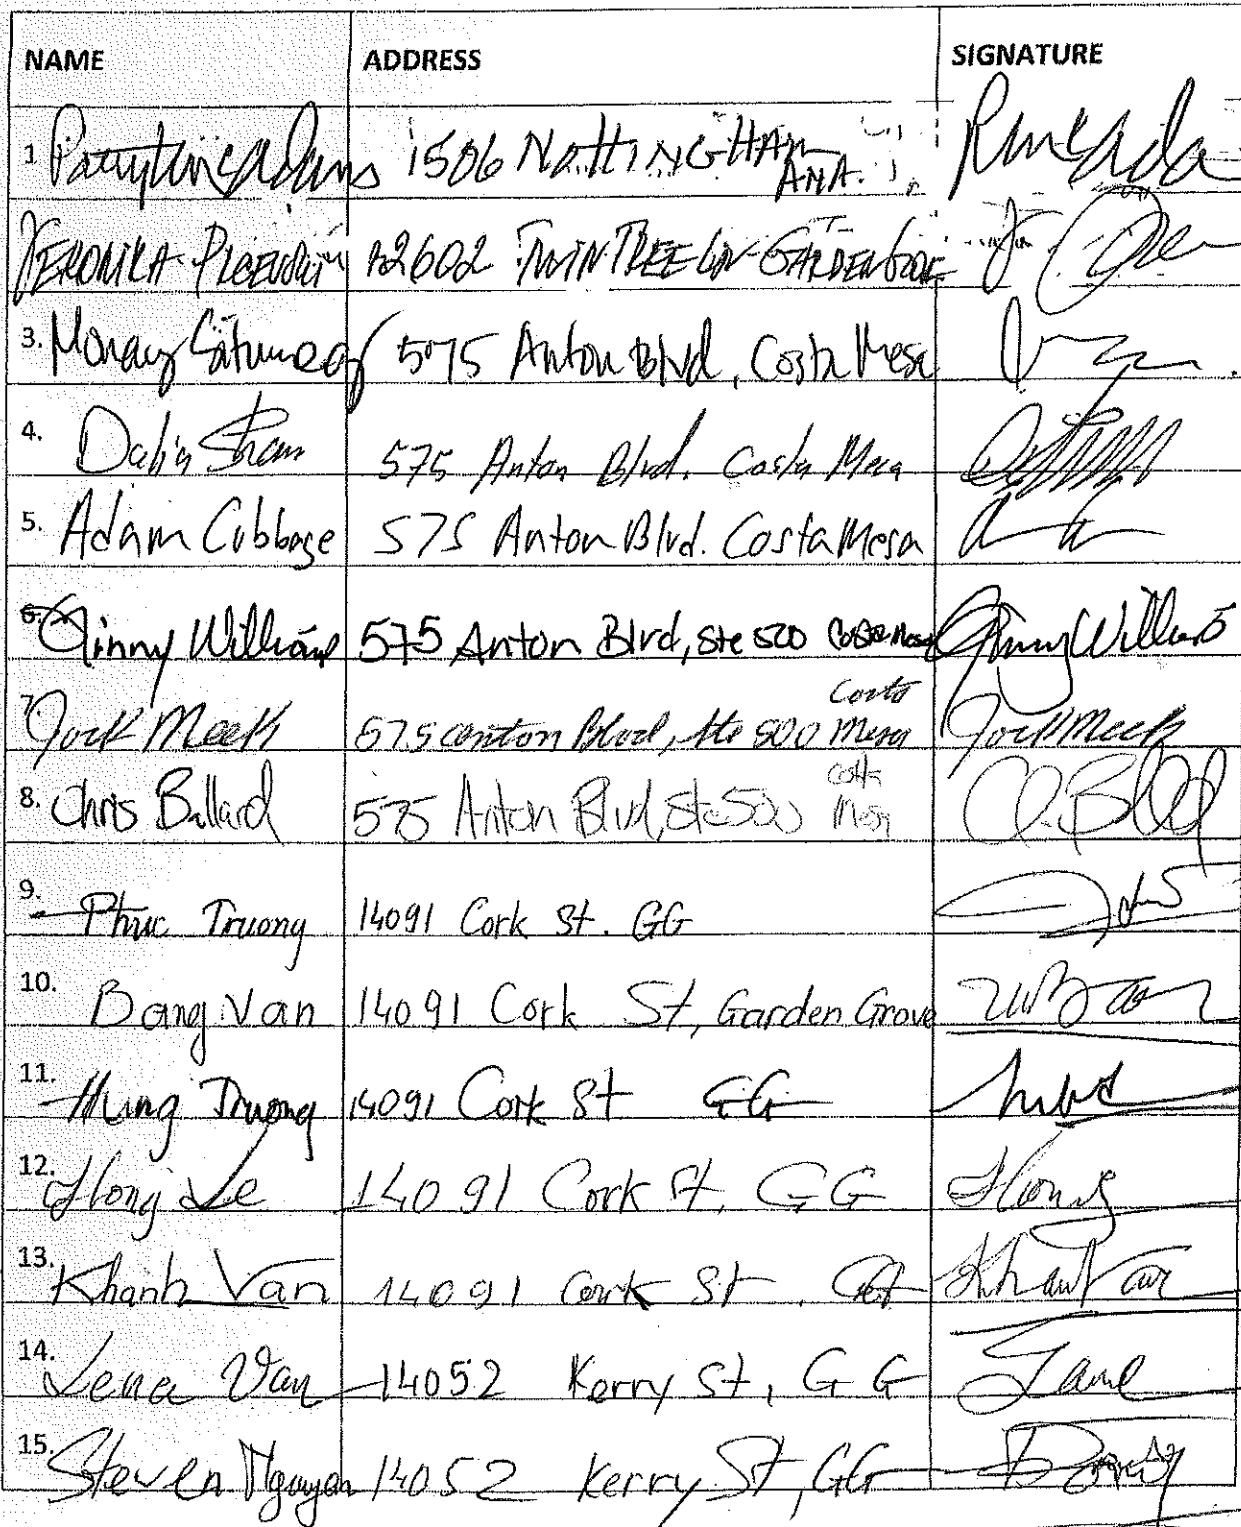 NAME ADDRESS SIGNATURE
1 1506 NOTTINGHAM ANA.
VERONIKA 12602 TWIN TREE LN GARDEN GROVE
3. 575 Anton Blvd, Costa Mesa
4. Dalia Sham 575 Anton Blvd. Costa Mesa
5. Adam Cubbage 575 Anton Blvd. Costa Mesa
6. Ginny Williams 575 Anton Blvd, Ste 500 Costa Mesa Ginny Williams
7. Jock Meek 575 Anton Blvd, Ste 500 Costa Mesa Jock Meek
8. Chris Bullard 575 Anton Blvd, Ste 500 Costa Mesa
9. Phuc Truong 14091 Cork St. GG
10. Bang Van 14091 Cork St, Garden Grove
11. Hung Truong 14091 Cork St GG
12. Hong Le 14091 Cork St. GG Hong
13. Khanh Van 14091 Cork St. GG Khanh Van
14. Lena Van 14052 Kerry St, GG
15. Steven Nguyen 14052 Kerry St, GG